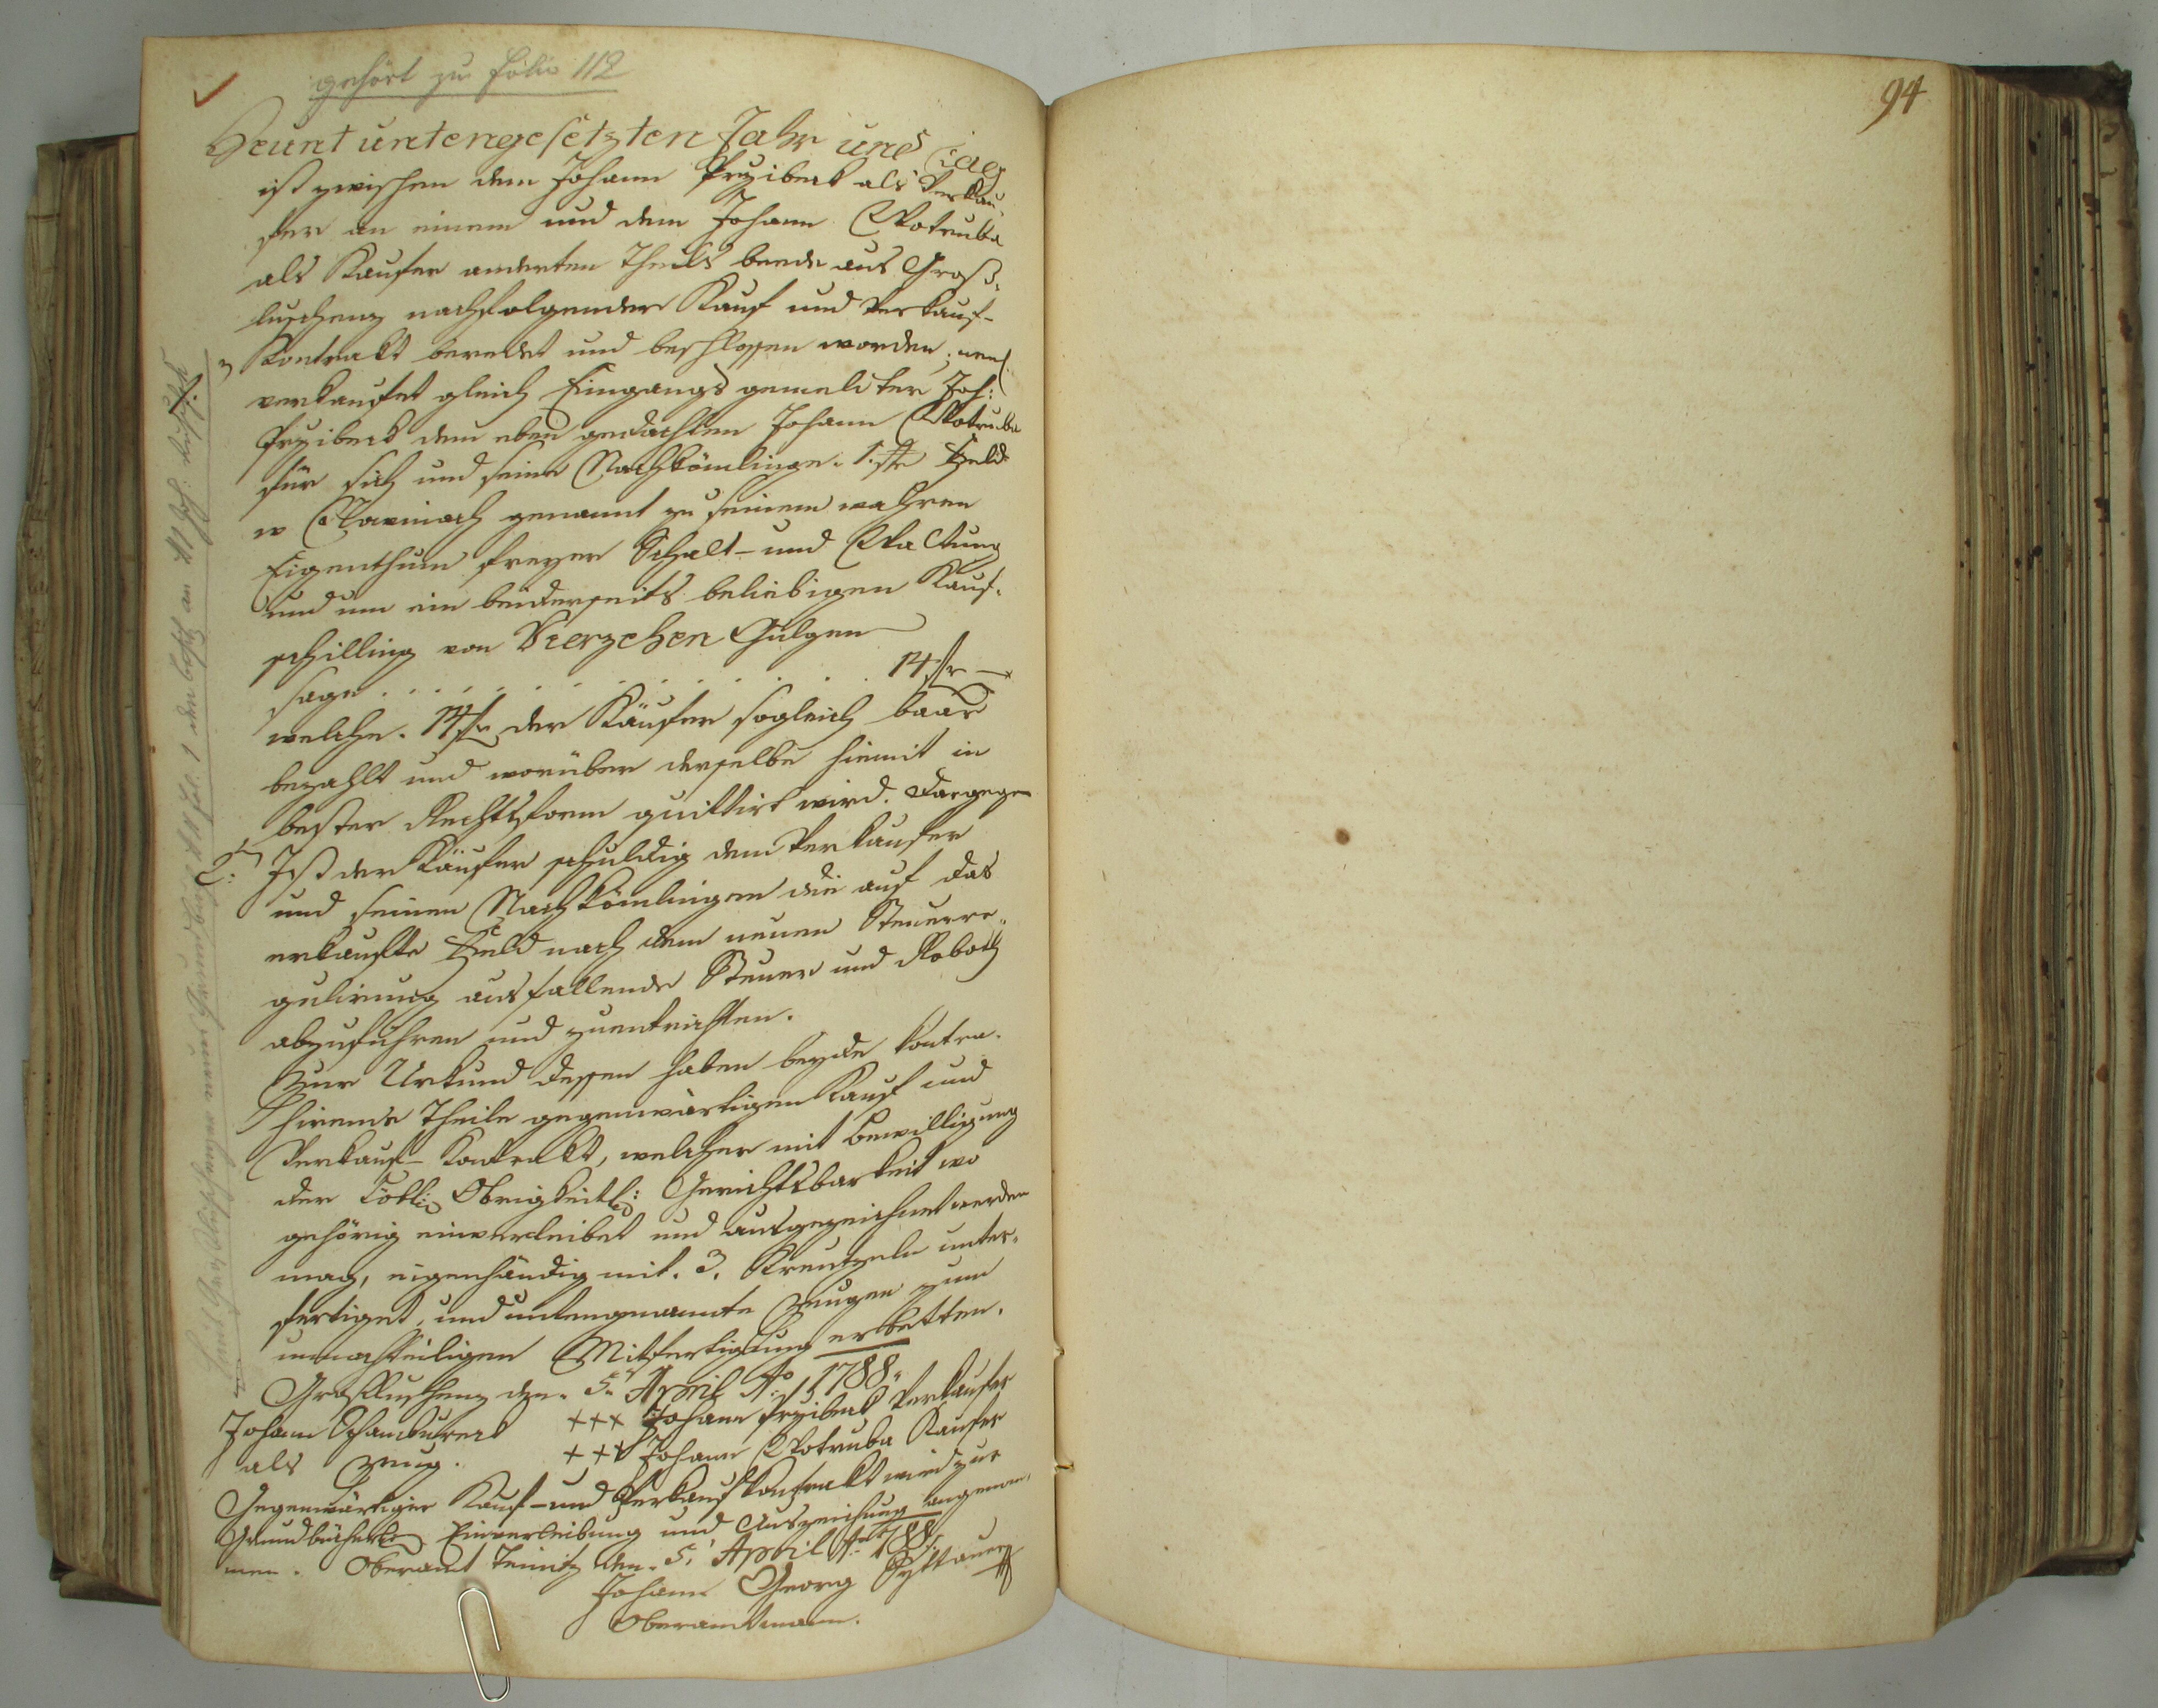 gehört zu folio 112
Heunt untengesetzten Jahr und Tag
ist zwischen dem Johann Prziberd als Verkau-
fer an einem und dem Johann Wotruba
als Kaufer anderten Theils beede aus Groß-
luschenz nachfolgender Kauf und Verkauf-
Kontrakt beredet und beschlossen worden,
verkaufet gleich Eingangs gemelcter Joh:
Przibeck dem eben gedachten Johann Wotruba
für sich und seine Nachkömlinge. 1. Feld
genannt zu seinem wahren
Eigenthum freyer Schalt- und Waltung
und um ein beiderseits beliebigen Kauf-
schilling von Vierzehen Gulgen
sage . . . . . . . . . . . 14 fr —
welche. 14 fr der Käufer sogleich baar
bezahlt und worüber derselbe hiemit in
bester Rechtsform quittirt wird. Dargegen
2: Ist der Käufer schuldig dem Verkaufer
und seinen Nachkömlingen die auf das
erkaufte Feld nach dem neuen Steuerre-
gulirung ausfallende Steuer und Roboth
abzuführen und zuentrichten.
Zur Urkund dessen haben beyde kontra-
hirende Theile gegenwärtigen Kauf und
Verkauf-Kontrakt, welcher mit Bewilligung
der Löbl: Obrigkeitl: Gerichtsbarkeit wo
gehörig einverleibet und ausgezeichnet werden
mag, eigenhändig mit. 3. Kreutzeln unter-
fertiget, und untengenannte Zeugen zum
unnachtheiligen Mitfertigung erbetten.
Großluschenz den. 5. April Ao 1788.
Johann +++ Johann Przibeck Verkaufer
als Zeug. +++ Johann Wotruba Kaufer
Gegenwärtiger Kauf- und Verkaufkontrakt wird zur
Grundbücherl: Einverleibung und Auszeichung angenom-
men. Oberamt Teinitz den. 5. April Ao 1788.
Johann Georg
Oberamtmann.
94